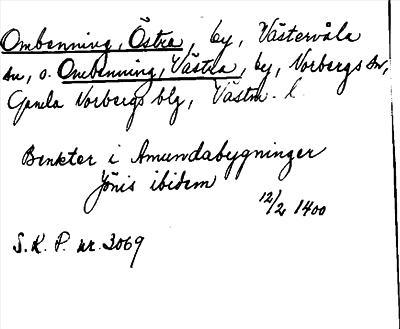 Ombenning, Östra, by, Västervåla
sn, o. Ombenning, Västra, by, Norbergs sn,
Gamla Norbergs blg, Västm. l.
Benkter i Amundabygninger
Jönis ibidem
12/2 1400
S.K.P. nr. 3069